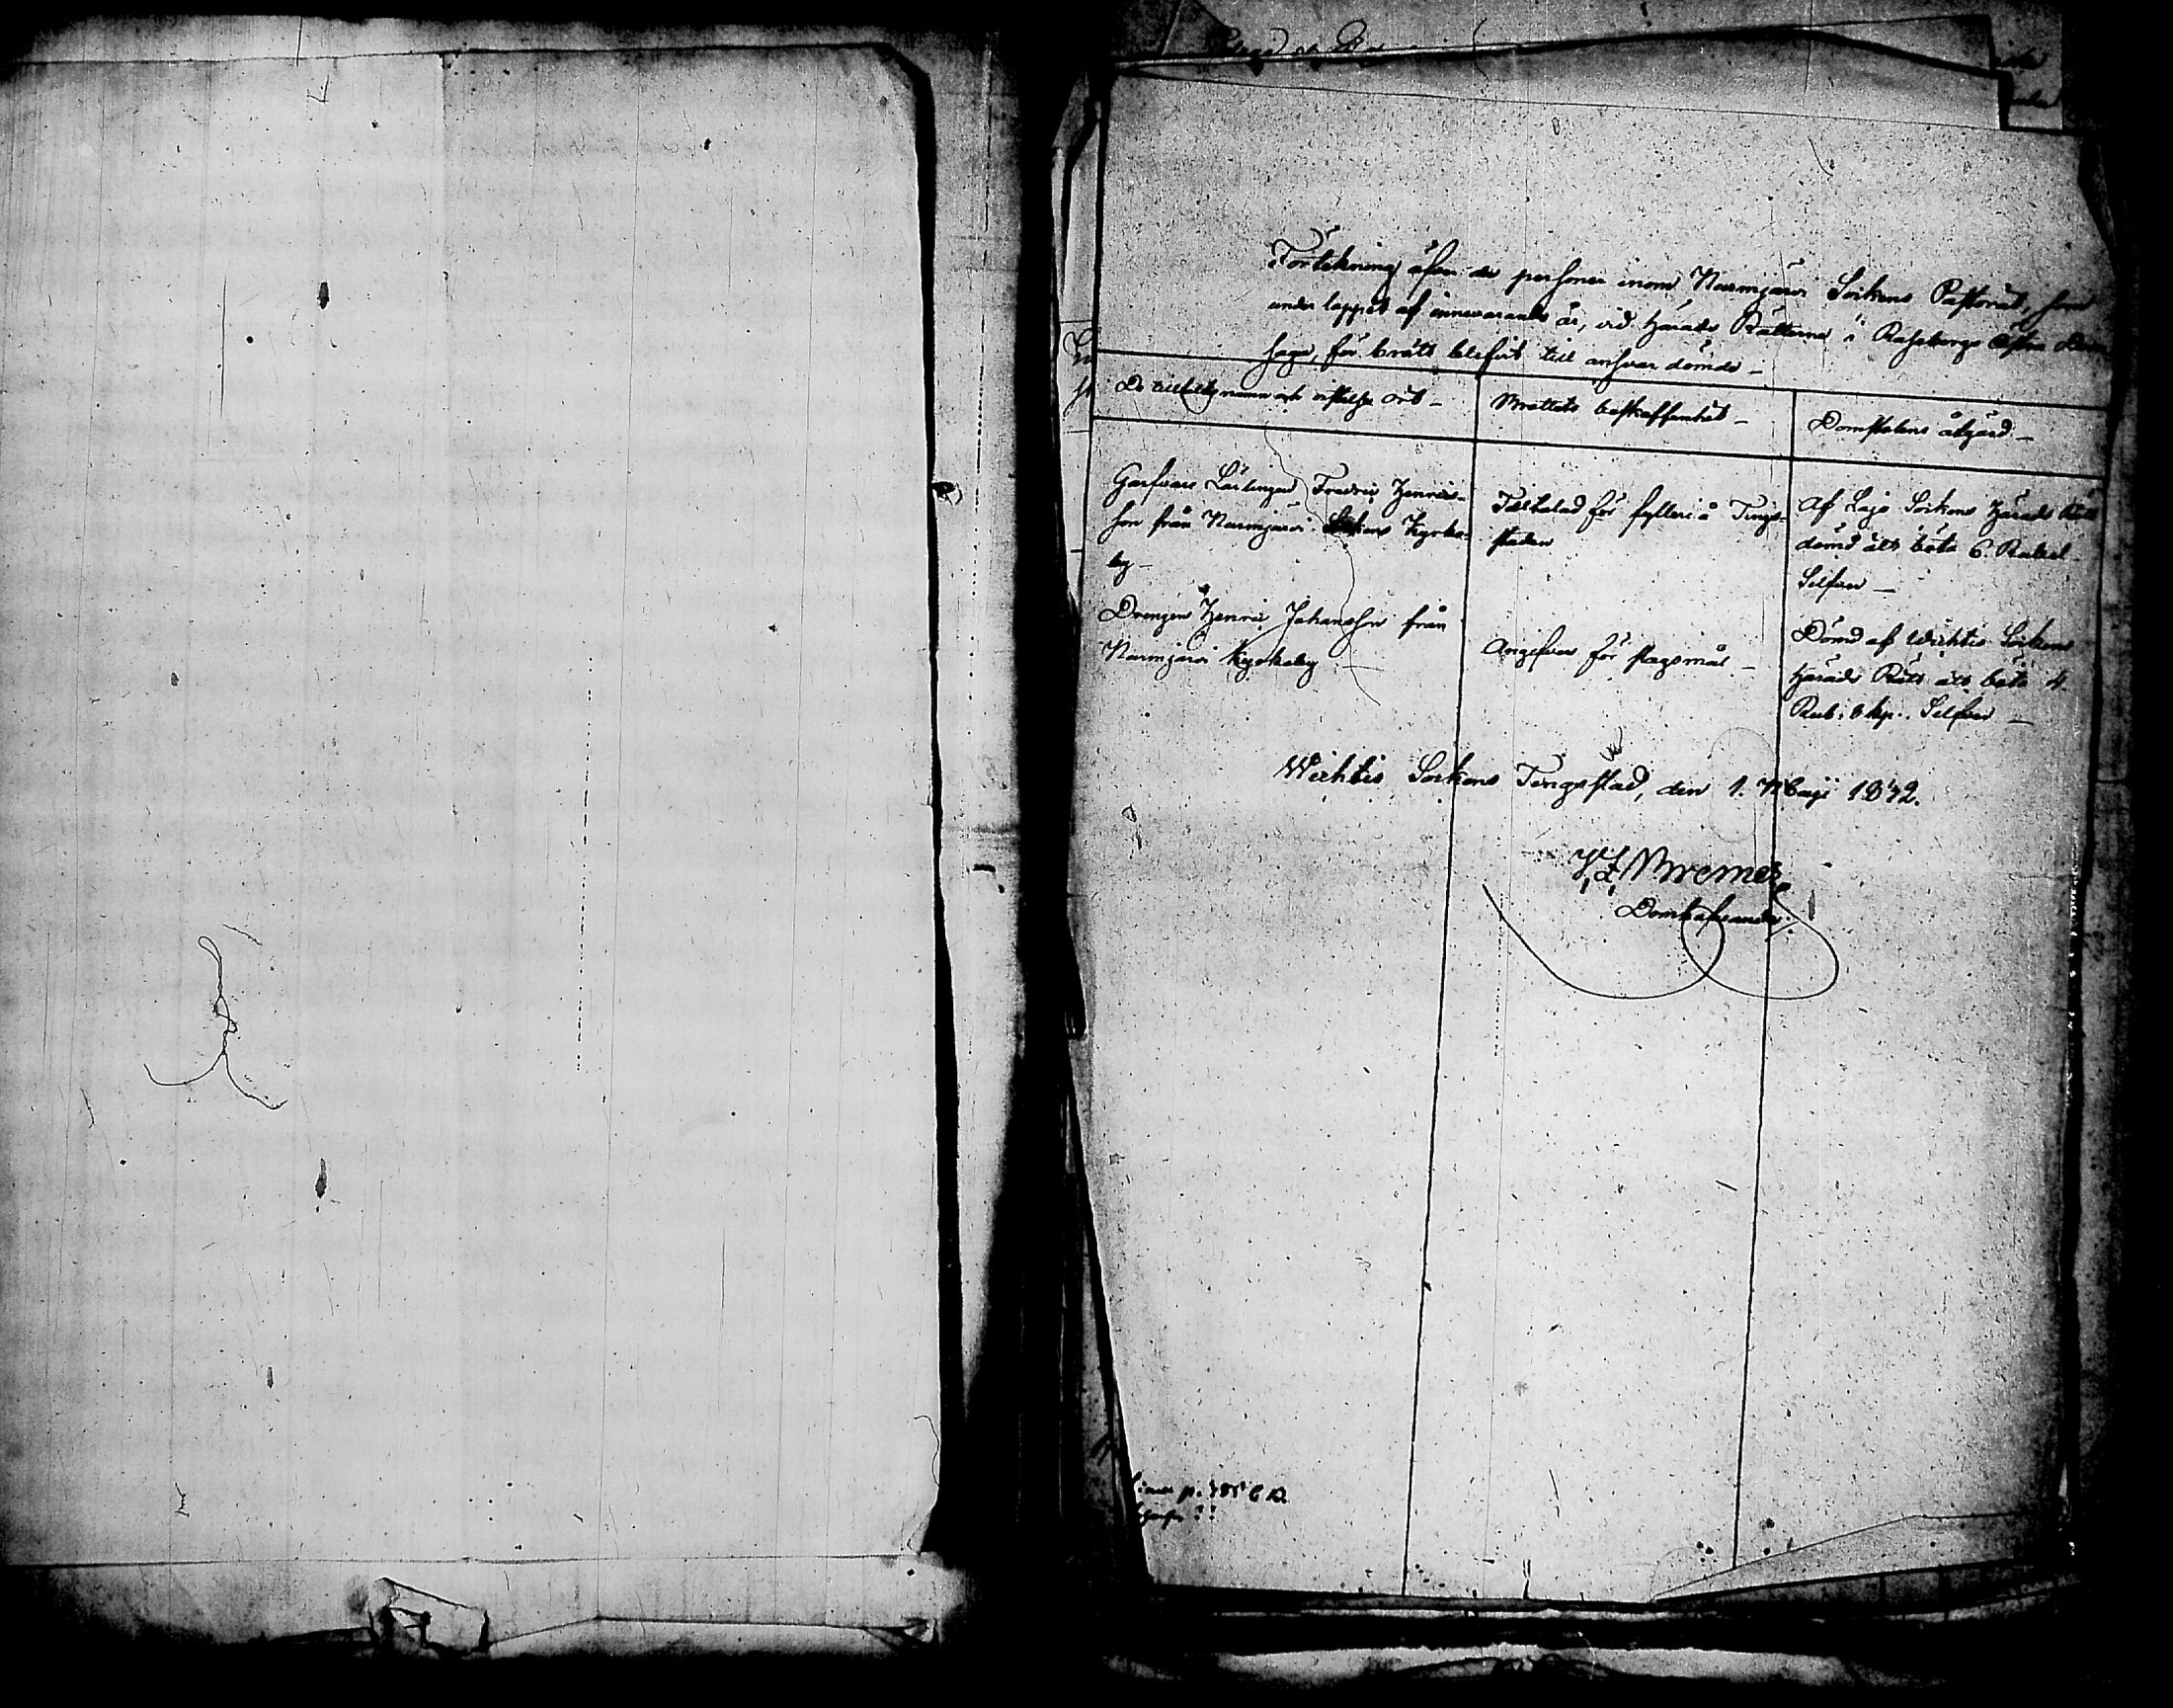 Förtekning öfver de personer inom Nurmijärvi Sockens Pastorat, som
under loppet af innevarande år, vid Härads Rätterne i Raseborgs Östra Dom-
saga, för brott blifvit till ansvar dömde —
De tilltaltes namn och vistelse ort —
Brottets beskaffenhet —
Domstolens åtgärd —
Garfvare Lärlingen Fredric Henrics-
son från Nurmijärvi Sockens Kyrko-
by —
Tilltalad för fylleri å Tings-
staden
Af Lojo Sockens Härads Rätt
dömd att böta 6 Rubel
Silfver —
Drengen Henric Johansson från
Nurmijärvi Kyrkoby
Angifven för slagsmål —
Dömd af Wichtis Sockens
Härads Rätt att böta 4.
Rub. 8 kop. Silfver —
Wichtis Sockens Tingsstad, den 1. Maji 1842.
Bremer
Domhafvande.